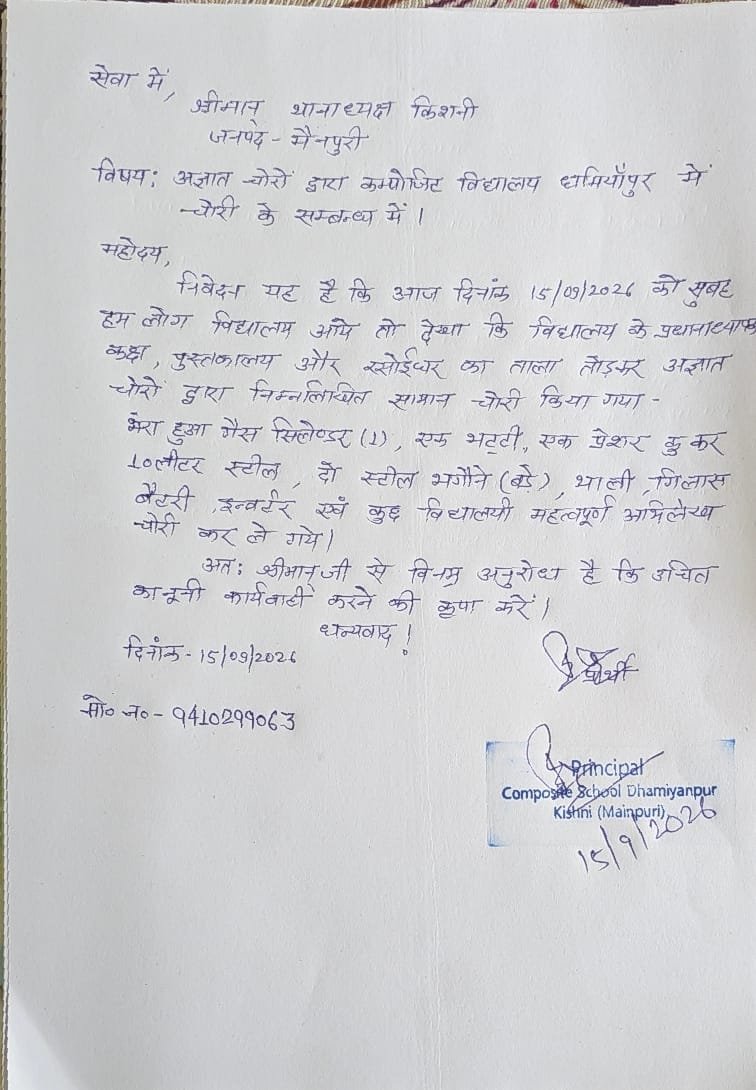 सेवा में,
श्रीमान् थानाध्यक्ष किशनी
जनपद - मैनपुरी
विषय: अज्ञात चोरों द्वारा कम्पोजिट विद्यालय धमियाँपुर में
चोरी के सम्बन्ध में।
महोदय,
निवेदन यह है कि आज दिनांक 15/09/2026 को सुबह
हम लोग विद्यालय आये तो देखा कि विद्यालय के प्रधानाध्यापक
कक्ष, पुस्तकालय और रसोईघर का ताला तोड़कर अज्ञात
चोरों द्वारा निम्नलिखित सामान चोरी किया गया -
भरा हुआ गैस सिलेण्डर (1), एक भट्टी, एक प्रेशर कुकर
10लीटर स्टील, दो स्टील भगौने (बड़े), थाली, गिलास
बैटरी, इन्वर्टर एवं कुछ विद्यालयी महत्वपूर्ण अभिलेख
चोरी कर ले गये।
अतः श्रीमान् जी से विनम्र अनुरोध है कि उचित
कानूनी कार्यवाही करने की कृपा करें।
धन्यवाद!
दिनांक - 15/09/2026
प्रार्थी
मो० न० - 9410299063
Principal
Composite School Dhamiyanpur
Kishni (Mainpuri)
15/9/2026